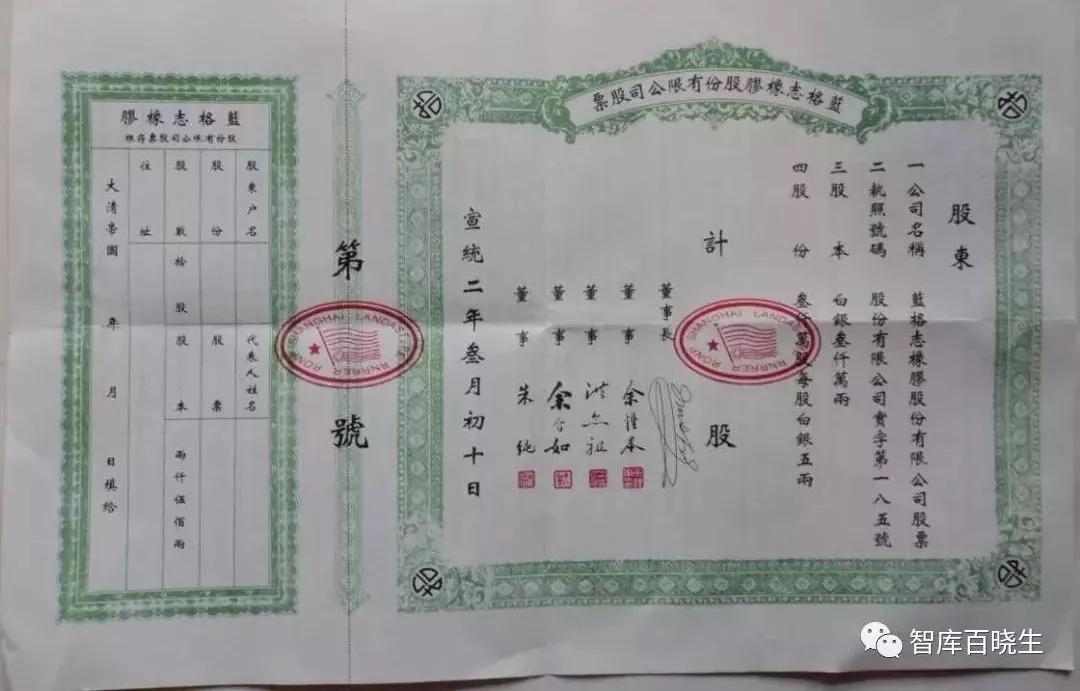 藍格志橡膠股份有限公司股票
股東
一公司名稱　藍格志橡膠股份有限公司股票
二執照號碼　股份有限公司實字第一八五號
三股本　白銀叁仟萬兩
四股份　叁仟萬股每股白銀五兩
計　股
董事長
董事　余
董事　祖
董事　余介如
董事　朱純
宣統二年叁月初十日
SHANGHAI LANDAS
RNRRER RONP
第　號
SHANGHAI LANDAS
RNRRER RONP
藍格志橡膠
股份有限公司股票存根
股東户名　代表人姓名
股份　股票
股數　拾股　股本　兩仟伍佰兩
住址
大清帝國　年　月　日填給
智库百晓生